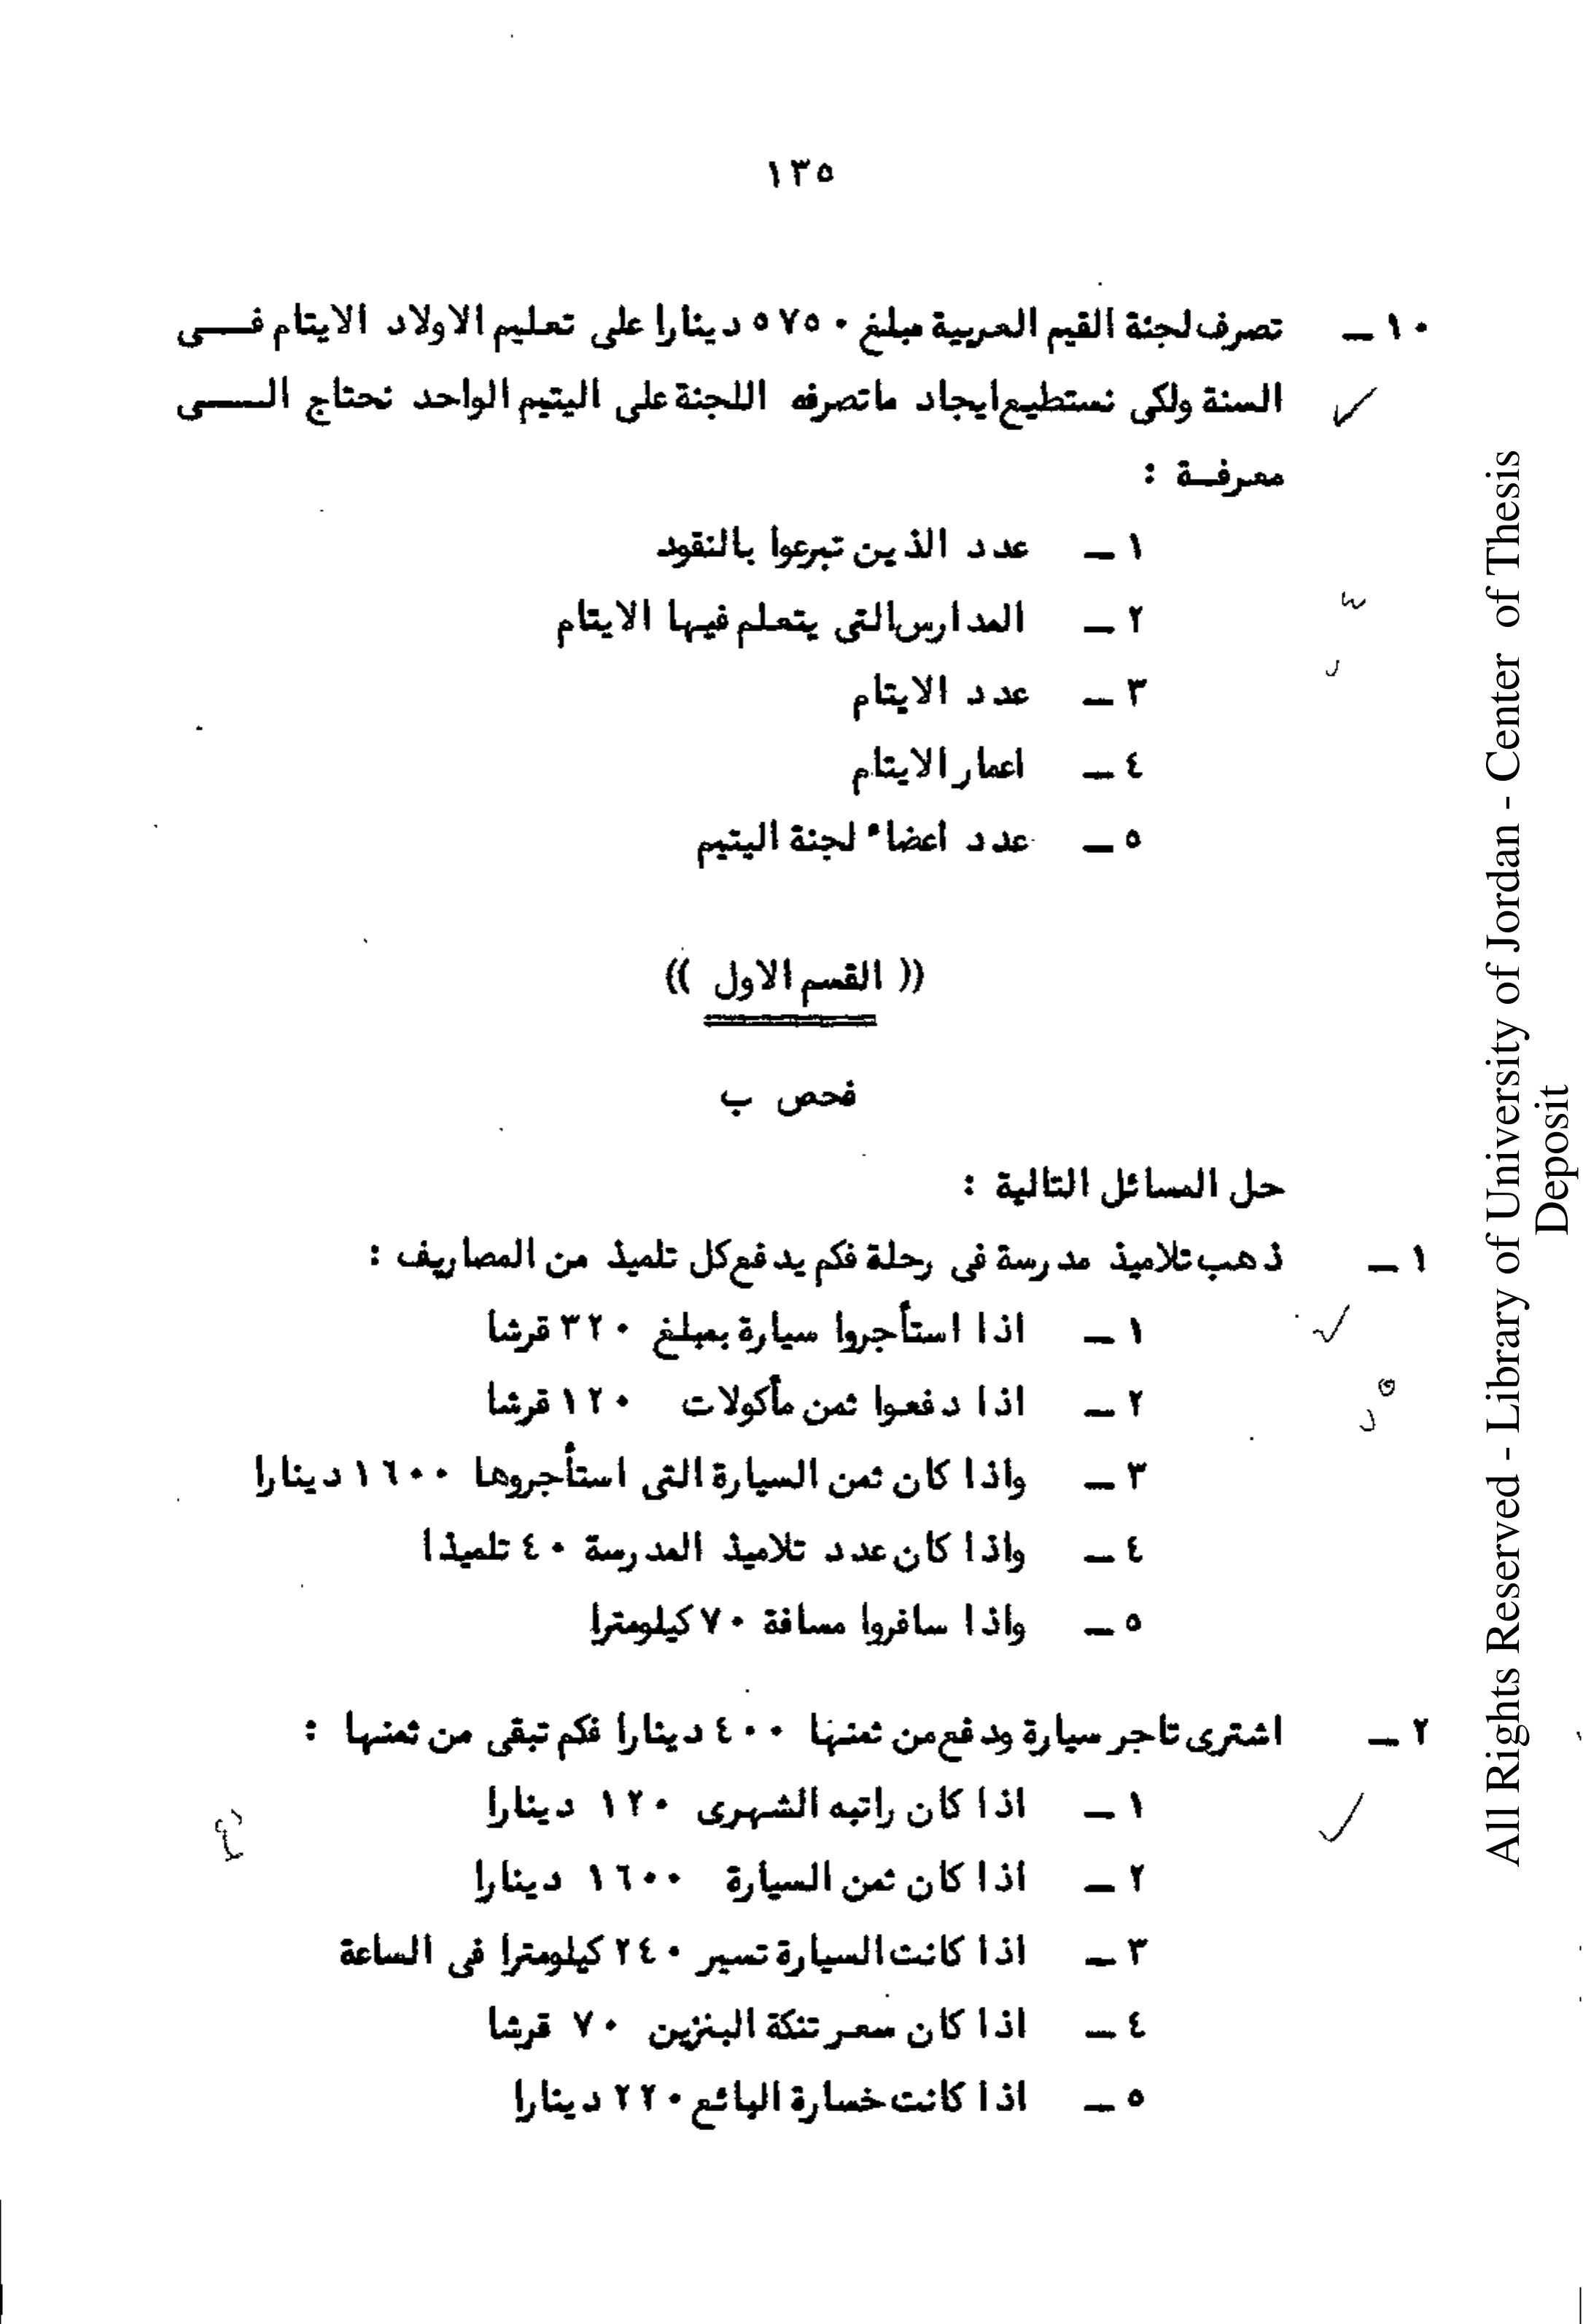 ١٣٥
١٠ – تصرف لجنة القيم العربية مبلغ ٥٧٥٠ دينارا على تعليم الاولاد الايتام فـــى
السنة ولكى نستطيع ايجاد ماتصرفه اللجنة على اليتيم الواحد نحتاج الـــى
معرفــة :
١ – عدد الذين تبرعوا بالنقود
٢ – المدارس التى يتعلم فيها الايتام
٣ – عدد الايتام
٤ – اعمار الايتام
٥ – عدد اعضاء لجنة اليتيم
(( القسم الاول ))
فحص ب
حل المسائل التالية :
١ – ذهب تلاميذ مدرسة فى رحلة فكم يدفع كل تلميذ من المصاريف :
١ – اذا استأجروا سيارة بمبلغ ٣٢٠ قرشا
٢ – اذا دفعوا ثمن مأكولات ١٢٠ قرشا
٣ – واذا كان ثمن السيارة التى استأجروها ١٦٠٠ دينارا
٤ – واذا كان عدد تلاميذ المدرسة ٤٠ تلميذا
٥ – واذا سافروا مسافة ٧٠ كيلومترا
٢ – اشترى تاجر سيارة ودفع من ثمنها ٤٠٠ دينارا فكم تبقى من ثمنها :
١ – اذا كان راتبه الشهرى ١٢٠ دينارا
٢ – اذا كان ثمن السيارة ١٦٠٠ دينارا
٣ – اذا كانت السيارة تسير ٢٤٠ كيلومترا فى الساعة
٤ – اذا كان سعر تنكة البنزين ٧٠ قرشا
٥ – اذا كانت خسارة البائع ٢٢٠ دينارا
All Rights Reserved - Library of University of Jordan - Center of Thesis
Deposit